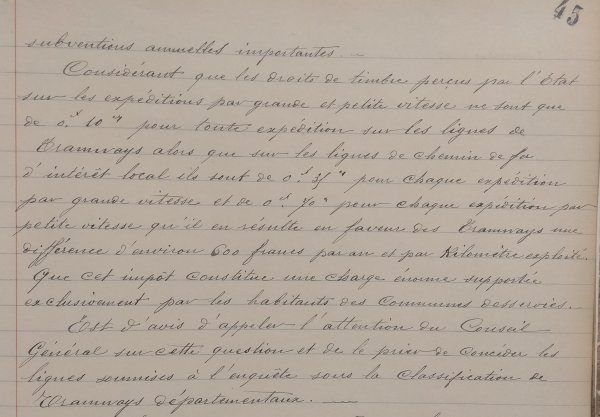 45
subventions annuelles importantes. —
Considérant que les droits de timbre perçus par l'Etat
sur les expéditions par grande et petite vitesse ne sont que
de 0.f 10 pour toute expédition sur les lignes de
Tramways alors que sur les lignes de chemin de fer
d'intérêt local ils sont de 0.f 35 pour chaque expédition
par grande vitesse et de 0.f 70 pour chaque expédition par
petite vitesse qu'il en résulte en faveur des Tramways une
différence d'environ 600 francs par an et par Kilomètre exploité.
Que cet impôt constitue une charge énorme supportée
exclusivement par les habitants des Communes desservies. —
Est d'avis d'appeler l'attention du Conseil
Général sur cette question et de le prier de concéder les
lignes soumises à l'enquête sous la classification de
Tramways départementaux. —